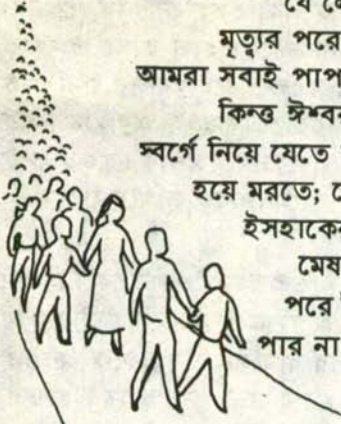 যে
মৃত্যুর পরে
আমরা সবাই পাপ
কিন্তু ঈশ্বর
স্বর্গে নিয়ে যেতে
হয়ে মরতে;
ইসহাকের
মেষ
পরে
পার না